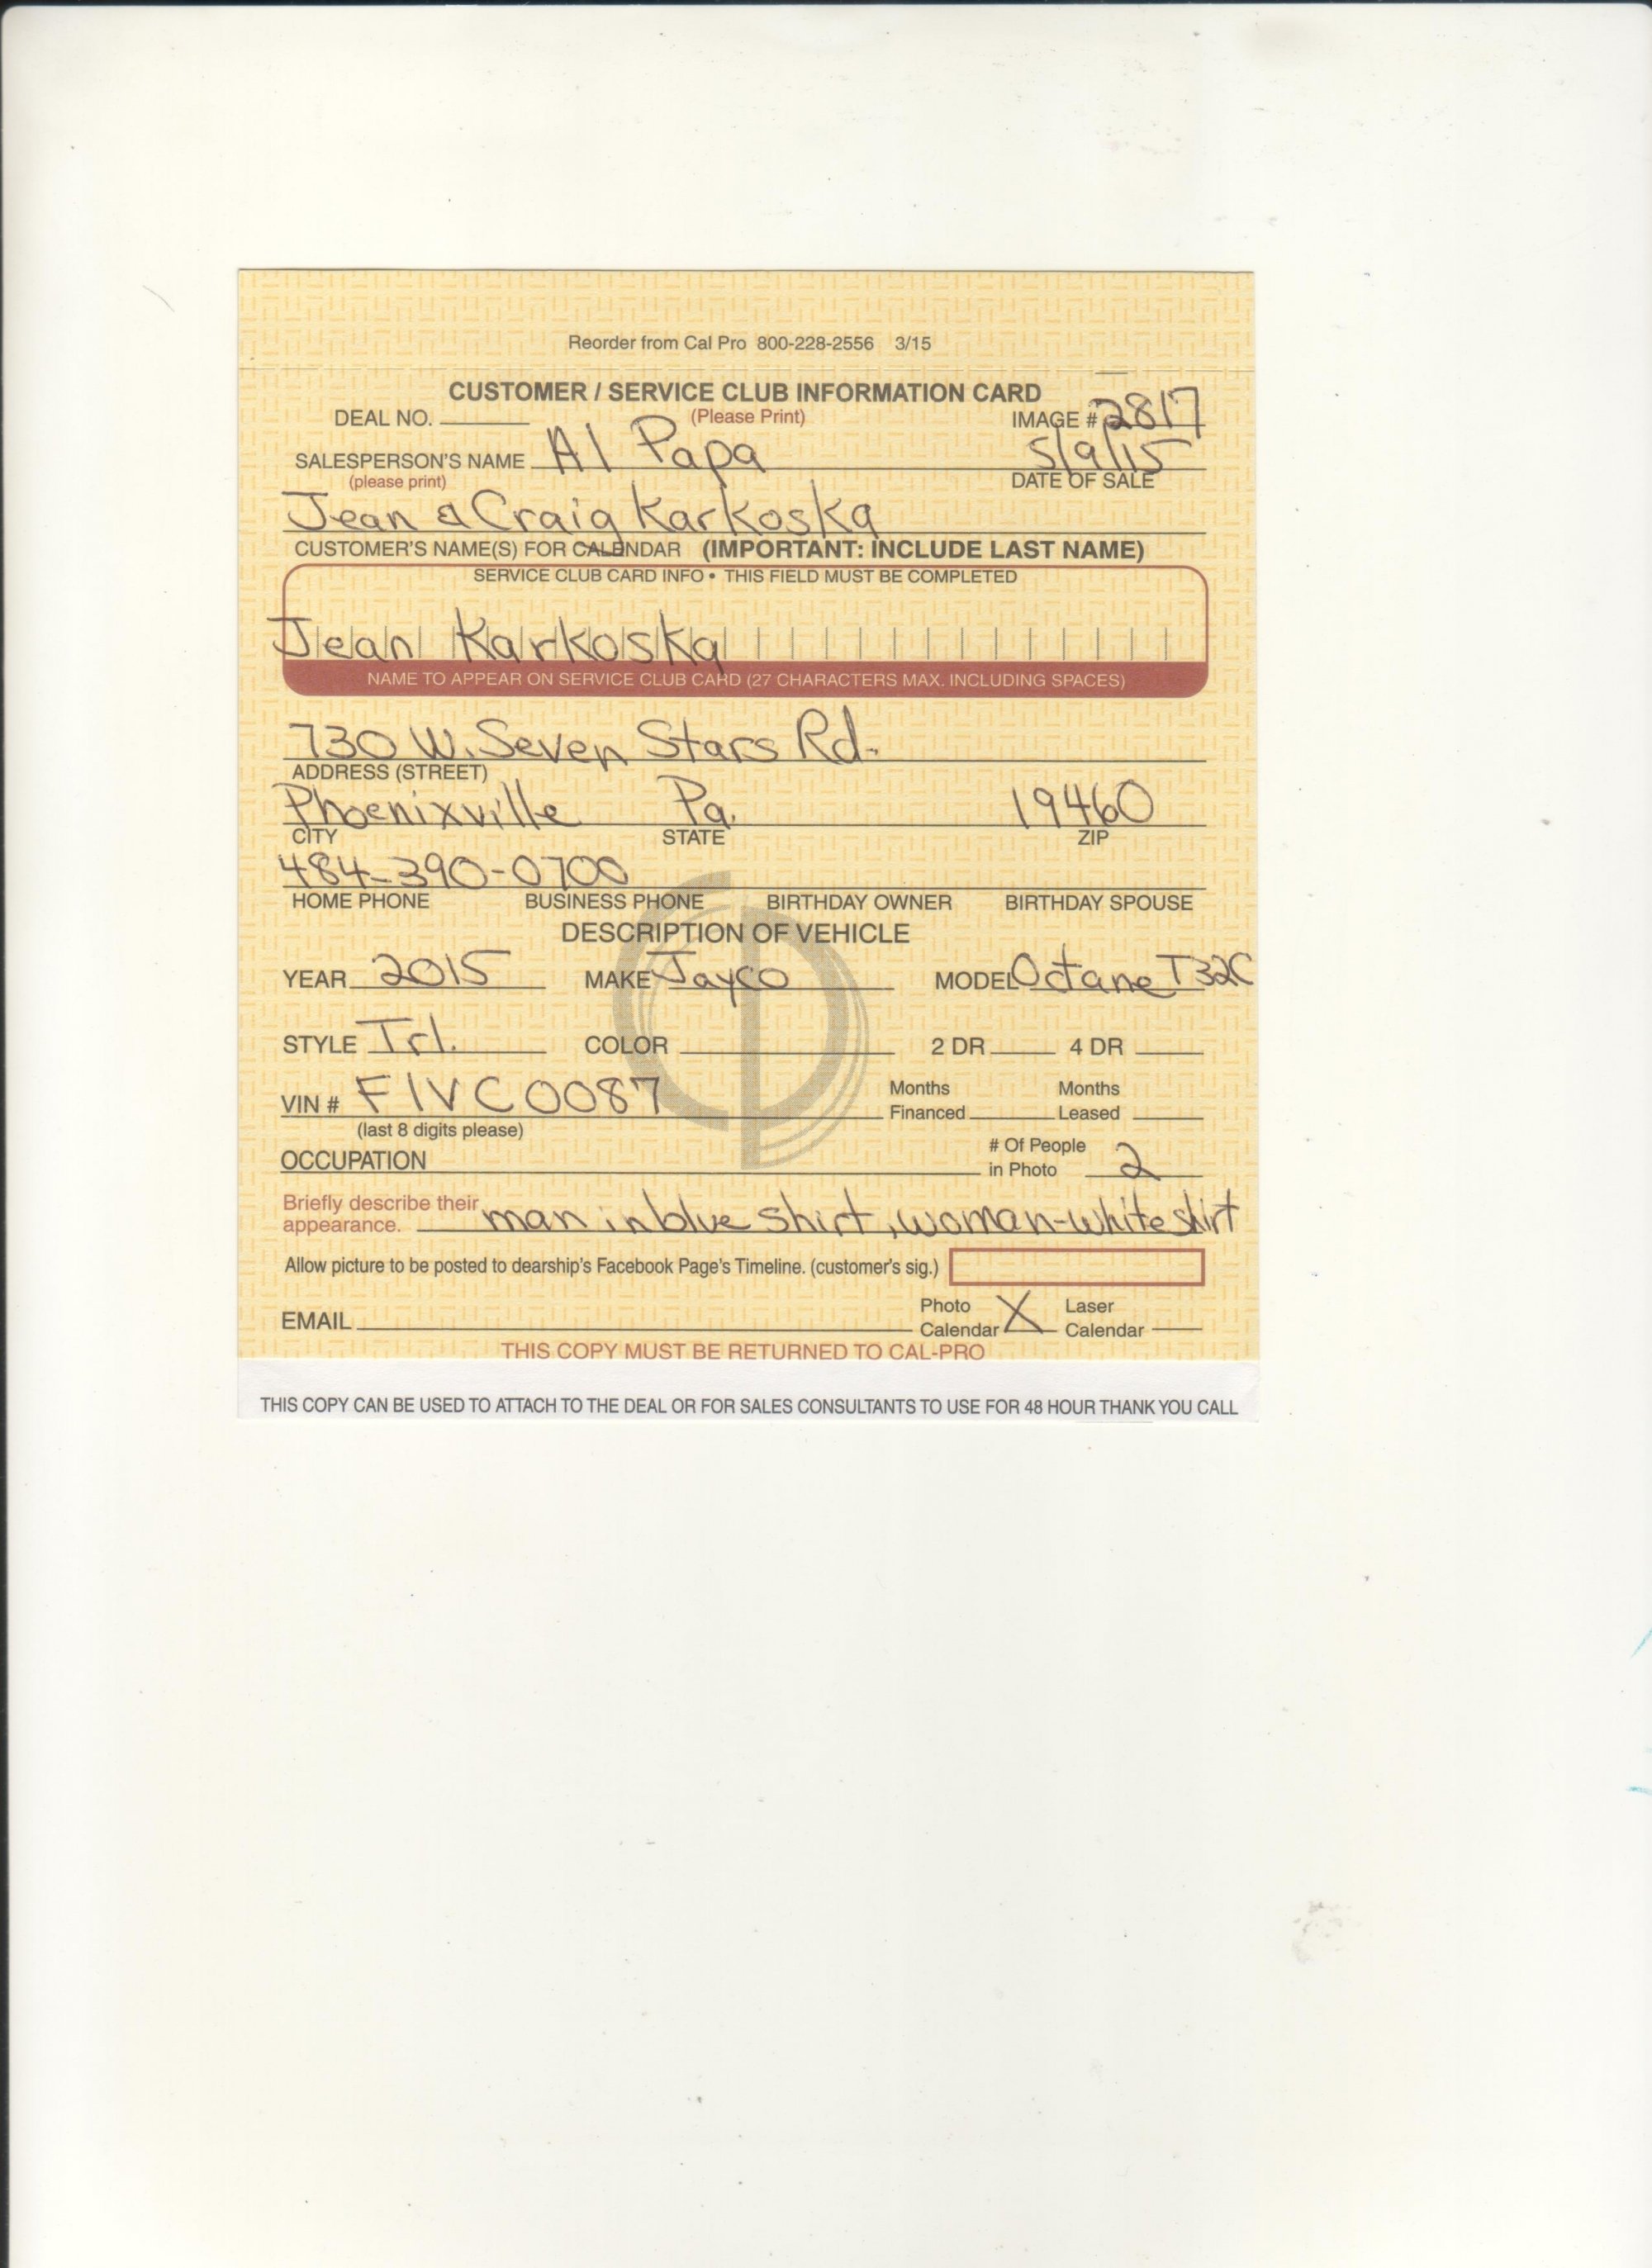 Reorder from Cal Pro 800-228-2556 3/15
CUSTOMER / SERVICE CLUB INFORMATION CARD
DEAL NO. (Please Print) IMAGE # 2817
SALESPERSON'S NAME Al Papa 5/9/15
(please print) DATE OF SALE
Jean & Craig Karkoska
CUSTOMER'S NAME(S) FOR CALENDAR (IMPORTANT: INCLUDE LAST NAME)
SERVICE CLUB CARD INFO • THIS FIELD MUST BE COMPLETED
Jean Karkoska
NAME TO APPEAR ON SERVICE CLUB CARD (27 CHARACTERS MAX. INCLUDING SPACES)
730 W. Seven Stars Rd.
ADDRESS (STREET)
Phoenixville Pa. 19460
CITY STATE ZIP
484-390-0700
HOME PHONE BUSINESS PHONE BIRTHDAY OWNER BIRTHDAY SPOUSE
DESCRIPTION OF VEHICLE
YEAR 2015 MAKE Jayco MODEL Octane T32C
STYLE Trl. COLOR 2 DR 4 DR
VIN # F1VC0087 Months Financed Months Leased
(last 8 digits please)
OCCUPATION # Of People in Photo 2
Briefly describe their appearance. man in blue shirt, woman-white shirt
Allow picture to be posted to dearship's Facebook Page's Timeline. (customer's sig.)
EMAIL Photo Calendar X Laser Calendar
THIS COPY MUST BE RETURNED TO CAL-PRO
THIS COPY CAN BE USED TO ATTACH TO THE DEAL OR FOR SALES CONSULTANTS TO USE FOR 48 HOUR THANK YOU CALL